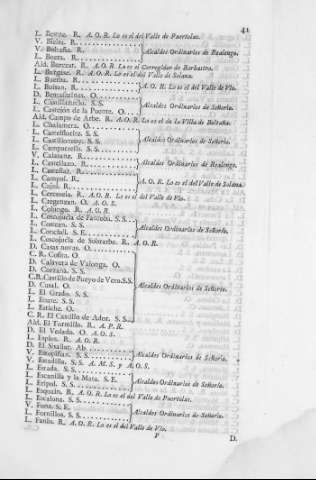 41
L. Bestue. R. A. O. R. Lo es el del Valle de Puertolas.
V. Bielsa. R.
V. Boltaña. R. Alcaldes Ordinarios de Realengo.
L. Buera. R.
Ald. Burceat. R. A. O. R. Lo es el Corregidor de Barbastro.
L. Burgase. R. A. O. R. Lo es el del Valle de Solana.
L. Buerba. R.
L. Buisan. R. A. O. R. Lo es el del Valle de Vio.
D. O.
L. S. S. Alcaldes Ordinarios de Señorío.
L. Castejon de la Puente. O.
Ald. Campo de Arbe. R. A. O. R. Lo es el de la Villa de Boltaña.
L. Chalamera. O.
L. Castelflorite. S. S.
L. S. S. Alcaldes Ordinarios de Señorío.
L. Camporrells. S. S.
V. Calasanz. R.
L. Castellazo. R. Alcaldes Ordinarios de Realengo.
L. R.
L. Campol. R.
L. Cajol. R. A. O. R. Lo es el del Valle de Solana.
L. Ceresuela. R. A. O. R. Lo es el del Valle de Vio.
L. O. A. O. S.
L. Coscojuela de Fantoba. S. S.
L. S. S. Alcaldes Ordinarios de Señorío.
L. Conchel. S. E.
L. Coscojuela de Sobrarbe. R. A. O. R.
D. Casas novas. O.
C. R. Cofita. O.
D. Calavera de Valonga. O.
D. S. S.
C.R. Castillo de Pueyo de Vero. S.S.
D. O. Alcaldes Ordinarios de Señorío.
L. El Grado. S. S.
L. S. S.
L. Estiche. O.
C. R. El Castillo de Ador. S. S.
Ald. El Tormillo. R. A. P. R.
D. El Vedado. O. A. O. S.
L. R. A. O. R.
D. El Sixallar. Ab.
V. Estopiñan. S. S. Alcaldes Ordinarios de Señorío.
V. Estadilla. S. S. A. M. S. y A. O. S.
L. Estada. S. S.
L. Escanilla y la Mata. S. E.
L. Eripol. S. S. Alcaldes Ordinarios de Señorío.
L. Escuain. R. A. O. R. Lo es el del Valle de Puertolas.
L. Escalona. S. S.
V. Fonz. S. E. Alcaldes Ordinarios de Señorío.
L. Fornillos. S. S.
L. Fanlo. R. A. O. R. Lo es el del Valle de Vio.
F D.